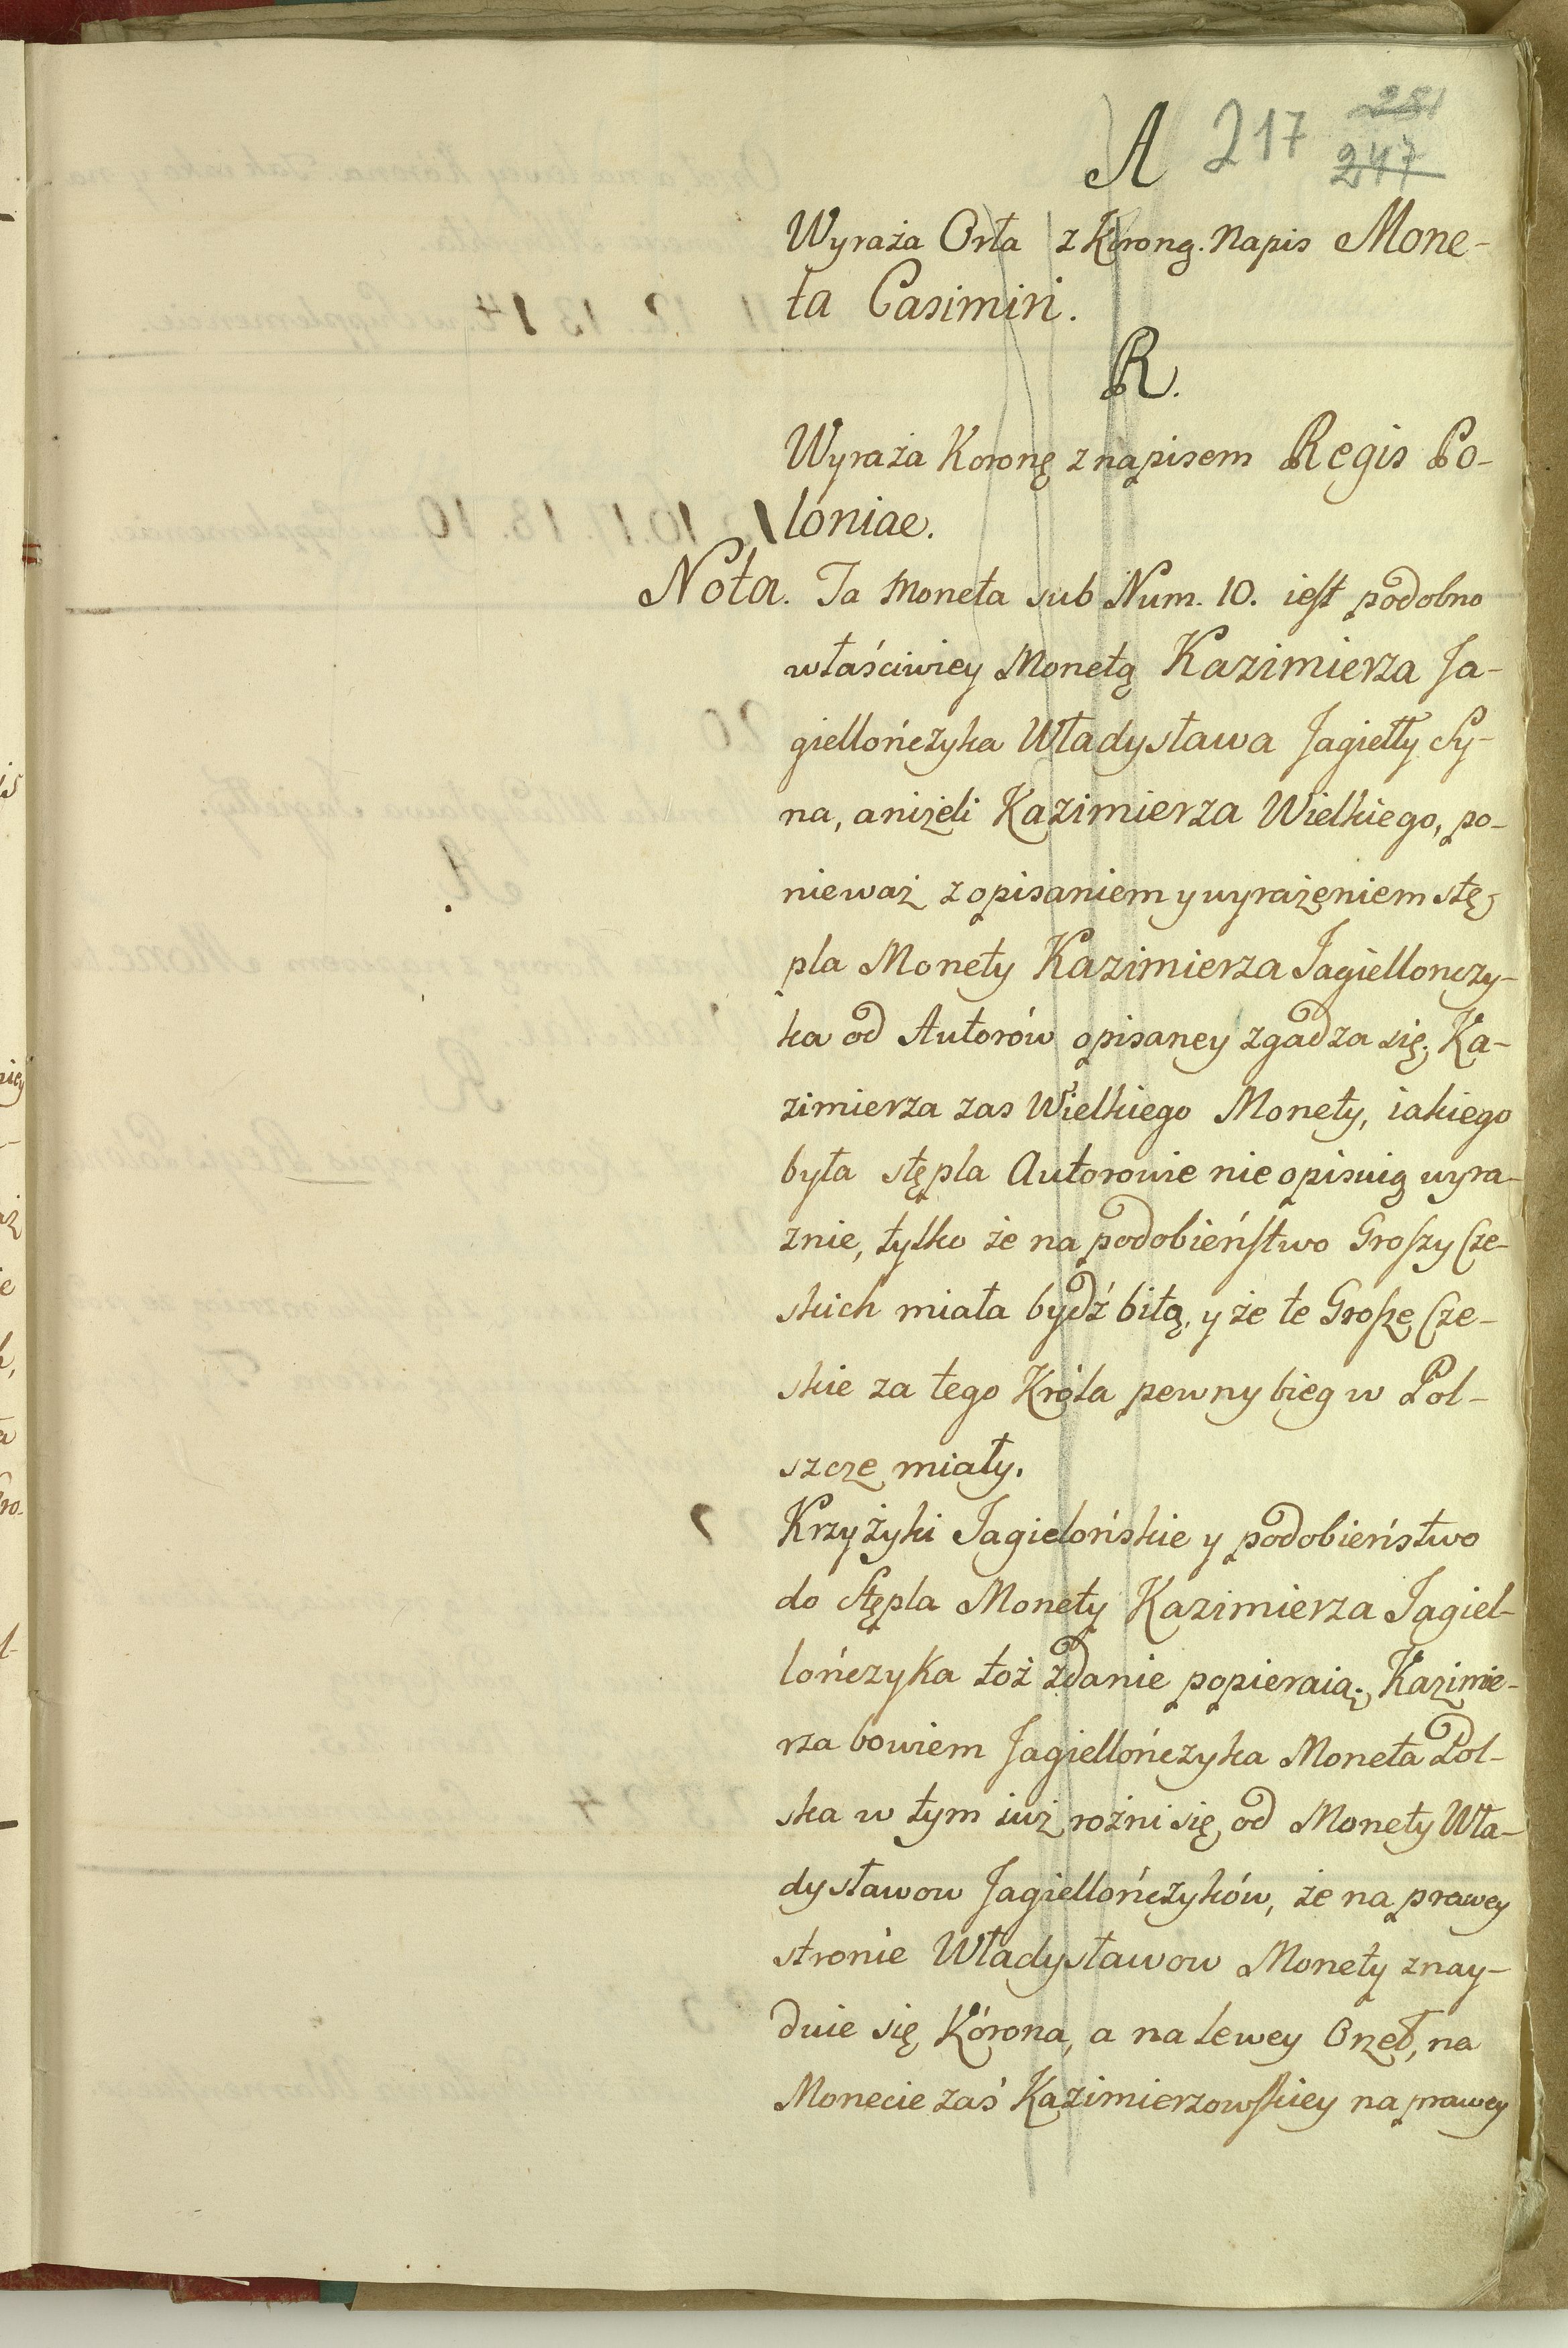 A 217 251
247
Wyraża Orła z Koroną. Napis Mone-
ta Casimiri.
R.
Wyraża Koronę z napisem Regis Po-
loniae.
Nota. Ta Moneta sub Num. 10. iest podobno
właściwiey Monetą Kazimierza Ja-
giellończyka Władysława Jagiełły Sy-
na, aniżeli Kazimierza Wielkiego, po-
nieważ z opisaniem y wyrażeniem stę-
pla Monety Kazimierza Jagiellonczy-
ka od Autorów opisaney zgadza się. Ka-
zimierza zas Wielkiego Monety, iakiego
była stępla Autorowie nie opisuią wyra-
znie, tylko że na podobieństwo Groszy Cze-
skich miała bydź bitą, y że te Grosze Cze-
skie za tego Króla pewny bieg w Pol-
szcze miały.
Krzyżyki Jagielońskie y podobieństwo
do Stępla Monety Kazimierza Jagiel-
lończyka toż zdanie popieraią. Kazimie-
rza bowiem Jagiellończyka Moneta Pol-
ska w tym iuż rożni się od Monety Wła-
dysławow Jagiellończyków, że na prawey
stronie Władysławow Monety znay-
duie się Korona, a na lewey Orzeł, na
Monecie zaś Kazimierzowskiey na prawey